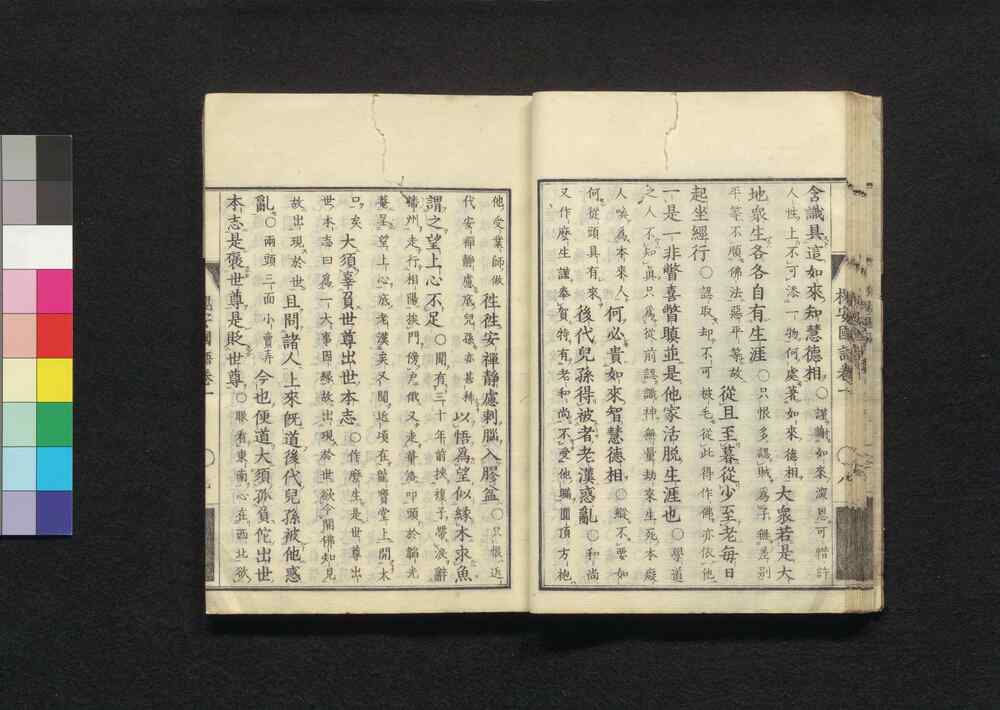 含識具這如來知慧德相〇謹謝如來深恩可惜許
人性上不可添一物何處著如來德相大衆若是大
地衆生各各自有生涯〇只恨多認賊爲子雖差別
平等不順佛法惡平等故從旦至暮從少至老每日
起坐經行〇認取却不可被毛從此得作佛亦依他
一是一非瞥喜瞥瞋並是他家活脱生涯也〇學道
之人不知眞只爲從前認識神無量劫來生死本癡
人喚爲本來人何必貴如來智慧德相〇縱不要如
何從頭具有來後代兒孫得被者老漢惑亂〇和尚
又作麼生謹奉賀特有老和尚不受他瞞圓頂方袍
槐安國語卷一
九
他受業師做往往安禪靜慮刺腦入膠盆〇只恨近
代安禪靜慮底兒孫亦甚稀以悟爲望似緣木求魚
謂之望上心不足〇聞有三十年前挾複子帶淚辭
播州走行相陽挨門傍戶俄又走華後叩頭於韜光
菴呈望上心底老漢矣又聞近頃有龍寶堂上開大
口矣大須辜負世尊出世本志〇作麼生是世尊出
世本志曰爲一大事因緣故出現於世欲令開佛知見
故出現於世且問諸人上來既道後代兒孫被他惑
亂〇兩頭三面小賣弄今也便道大須孤負佗出世
本志是褒世尊是貶世尊〇眼看東南心在西北欲